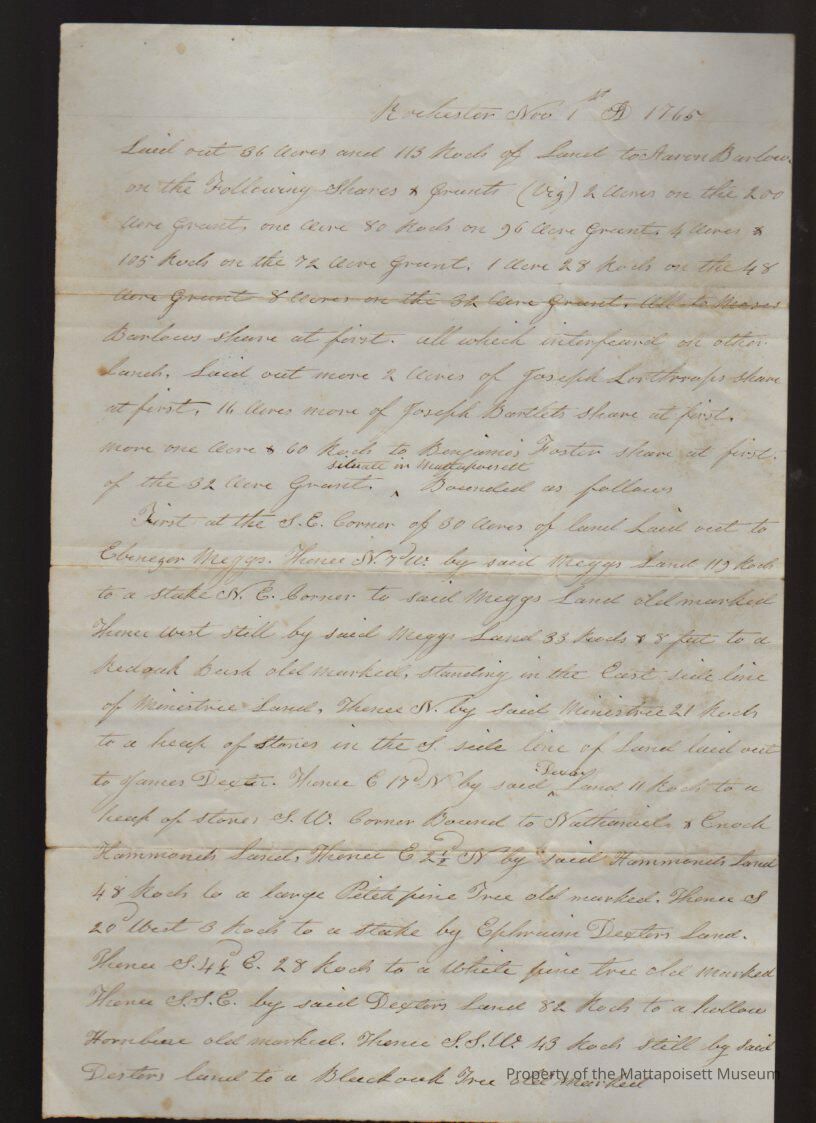 Rochester Nov 1st AD 1765
Laid out 36 Acres and 113 Rods of Land to Aaron Barlow
on the Following Shares & Grants (Viz) 2 Acres on the 200
Acre Grant, one Acre 80 Rods on 96 Acre Grant. 4 Acres &
105 Rods on the 72 Acre Grant. 1 Acre 28 Rods on the 48
Acre Grant 8 Acres on the 32 Acre Grant, All to Moses
Barlows share at first. all which interfeard on other
Land. Laid out more 2 Acres of Joseph Lorthrops share
at first, 16 Acres more of Joseph Bartlets share at first.
more one Acre & 60 Rods to Benjamins Foster share at first.
situate in Mattapoisett
of the 32 Acre Grant. ^ Bounded as follows
First at the S.E. Corner of 30 Acres of land Laid out to
Ebenezer Meggs. Thence N. 7d W. by said Meggs Land 119 Rods
to a stake N. E. Corner to said Meggs Land old marked
Thence West still by said Meggs Land 33 Rods & 8 feet to a
Redoak Bush old marked, standing in the East side line
of Ministree Land, Thence N. by said Ministree 21 Rods
to a heap of stones in the S. side line of Land laid out
to James Dexter. Thence E 17d N by said ^ Land 11 Rods to a
heap of stones S. W. Corner Bound to Nathaniel & Enoch
Hammonds Land, Thence E 2½d N by said Hammonds Land
48 Rods to a large Pitch pine Tree old marked. Thence S
20d West 3 Rods to a stake by Ephraim Dexters Land.
Thence S. 4½d E. 28 Rods to a White pine tree old marked
Thence S.S.E. by said Dexters Land 82 Rods to a hollow
Hornbine old marked. Thence S.S.W. 43 Rods still by said
Dexters land to a Blackoak Tree old marked
Property of the Mattapoisett Museum